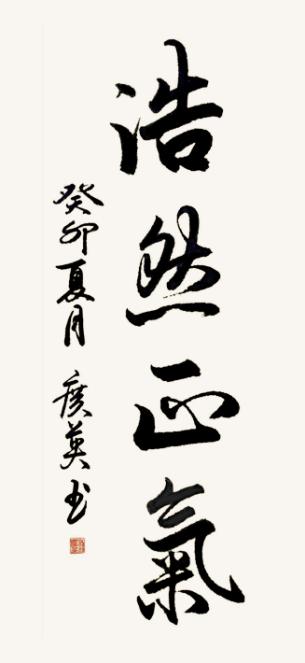 浩然正氣
癸卯夏月 廣英书